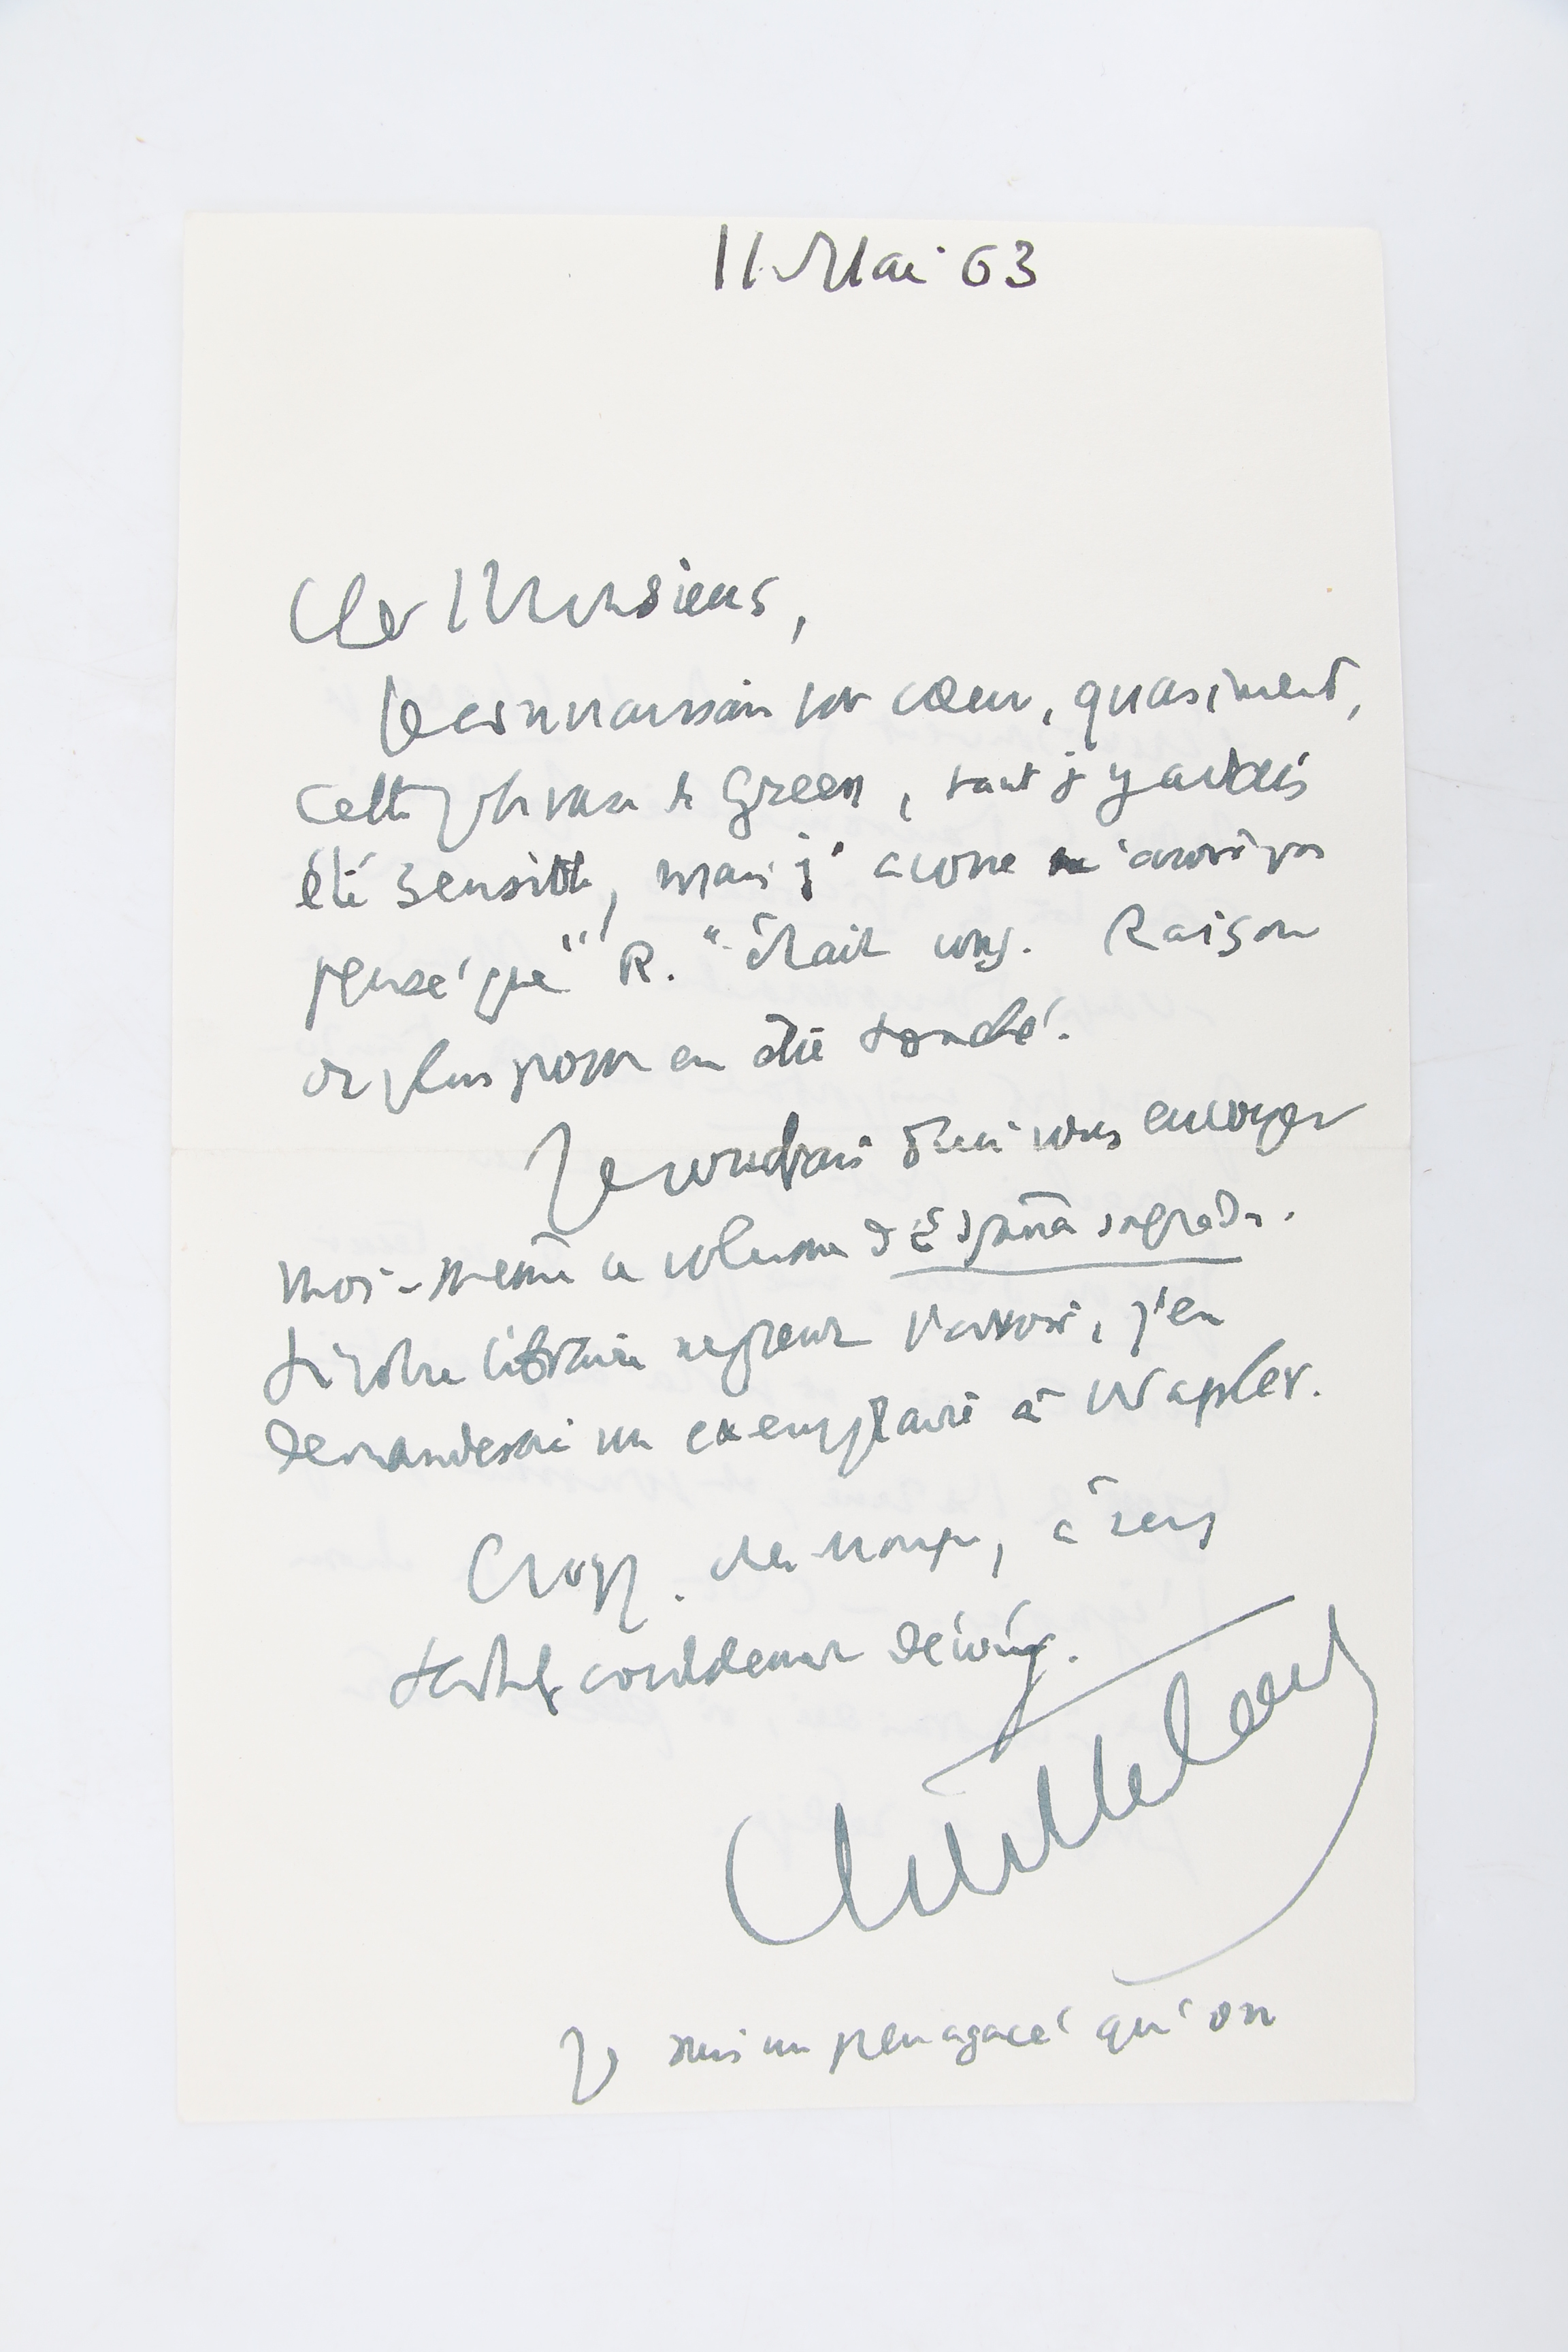 11 Mai 63
Cher Monsieur,
Je connaissais par cœur, quasiment,
cette phrase de Green, tant j'y avais
été sensible, mais j'avoue n'avoir pas
pensé que "R." était vous. Raison
de plus pour en être touché.
Je voudrais bien vous envoyer
moi-même ce volume d'España sagrada.
Si votre libraire ne peut l'avoir, j'en
demanderai un exemplaire à Wapler.
Croyez, cher Monsieur, à mes
sentiments cordialement dévoués.
Je suis un peu agacé qu'on